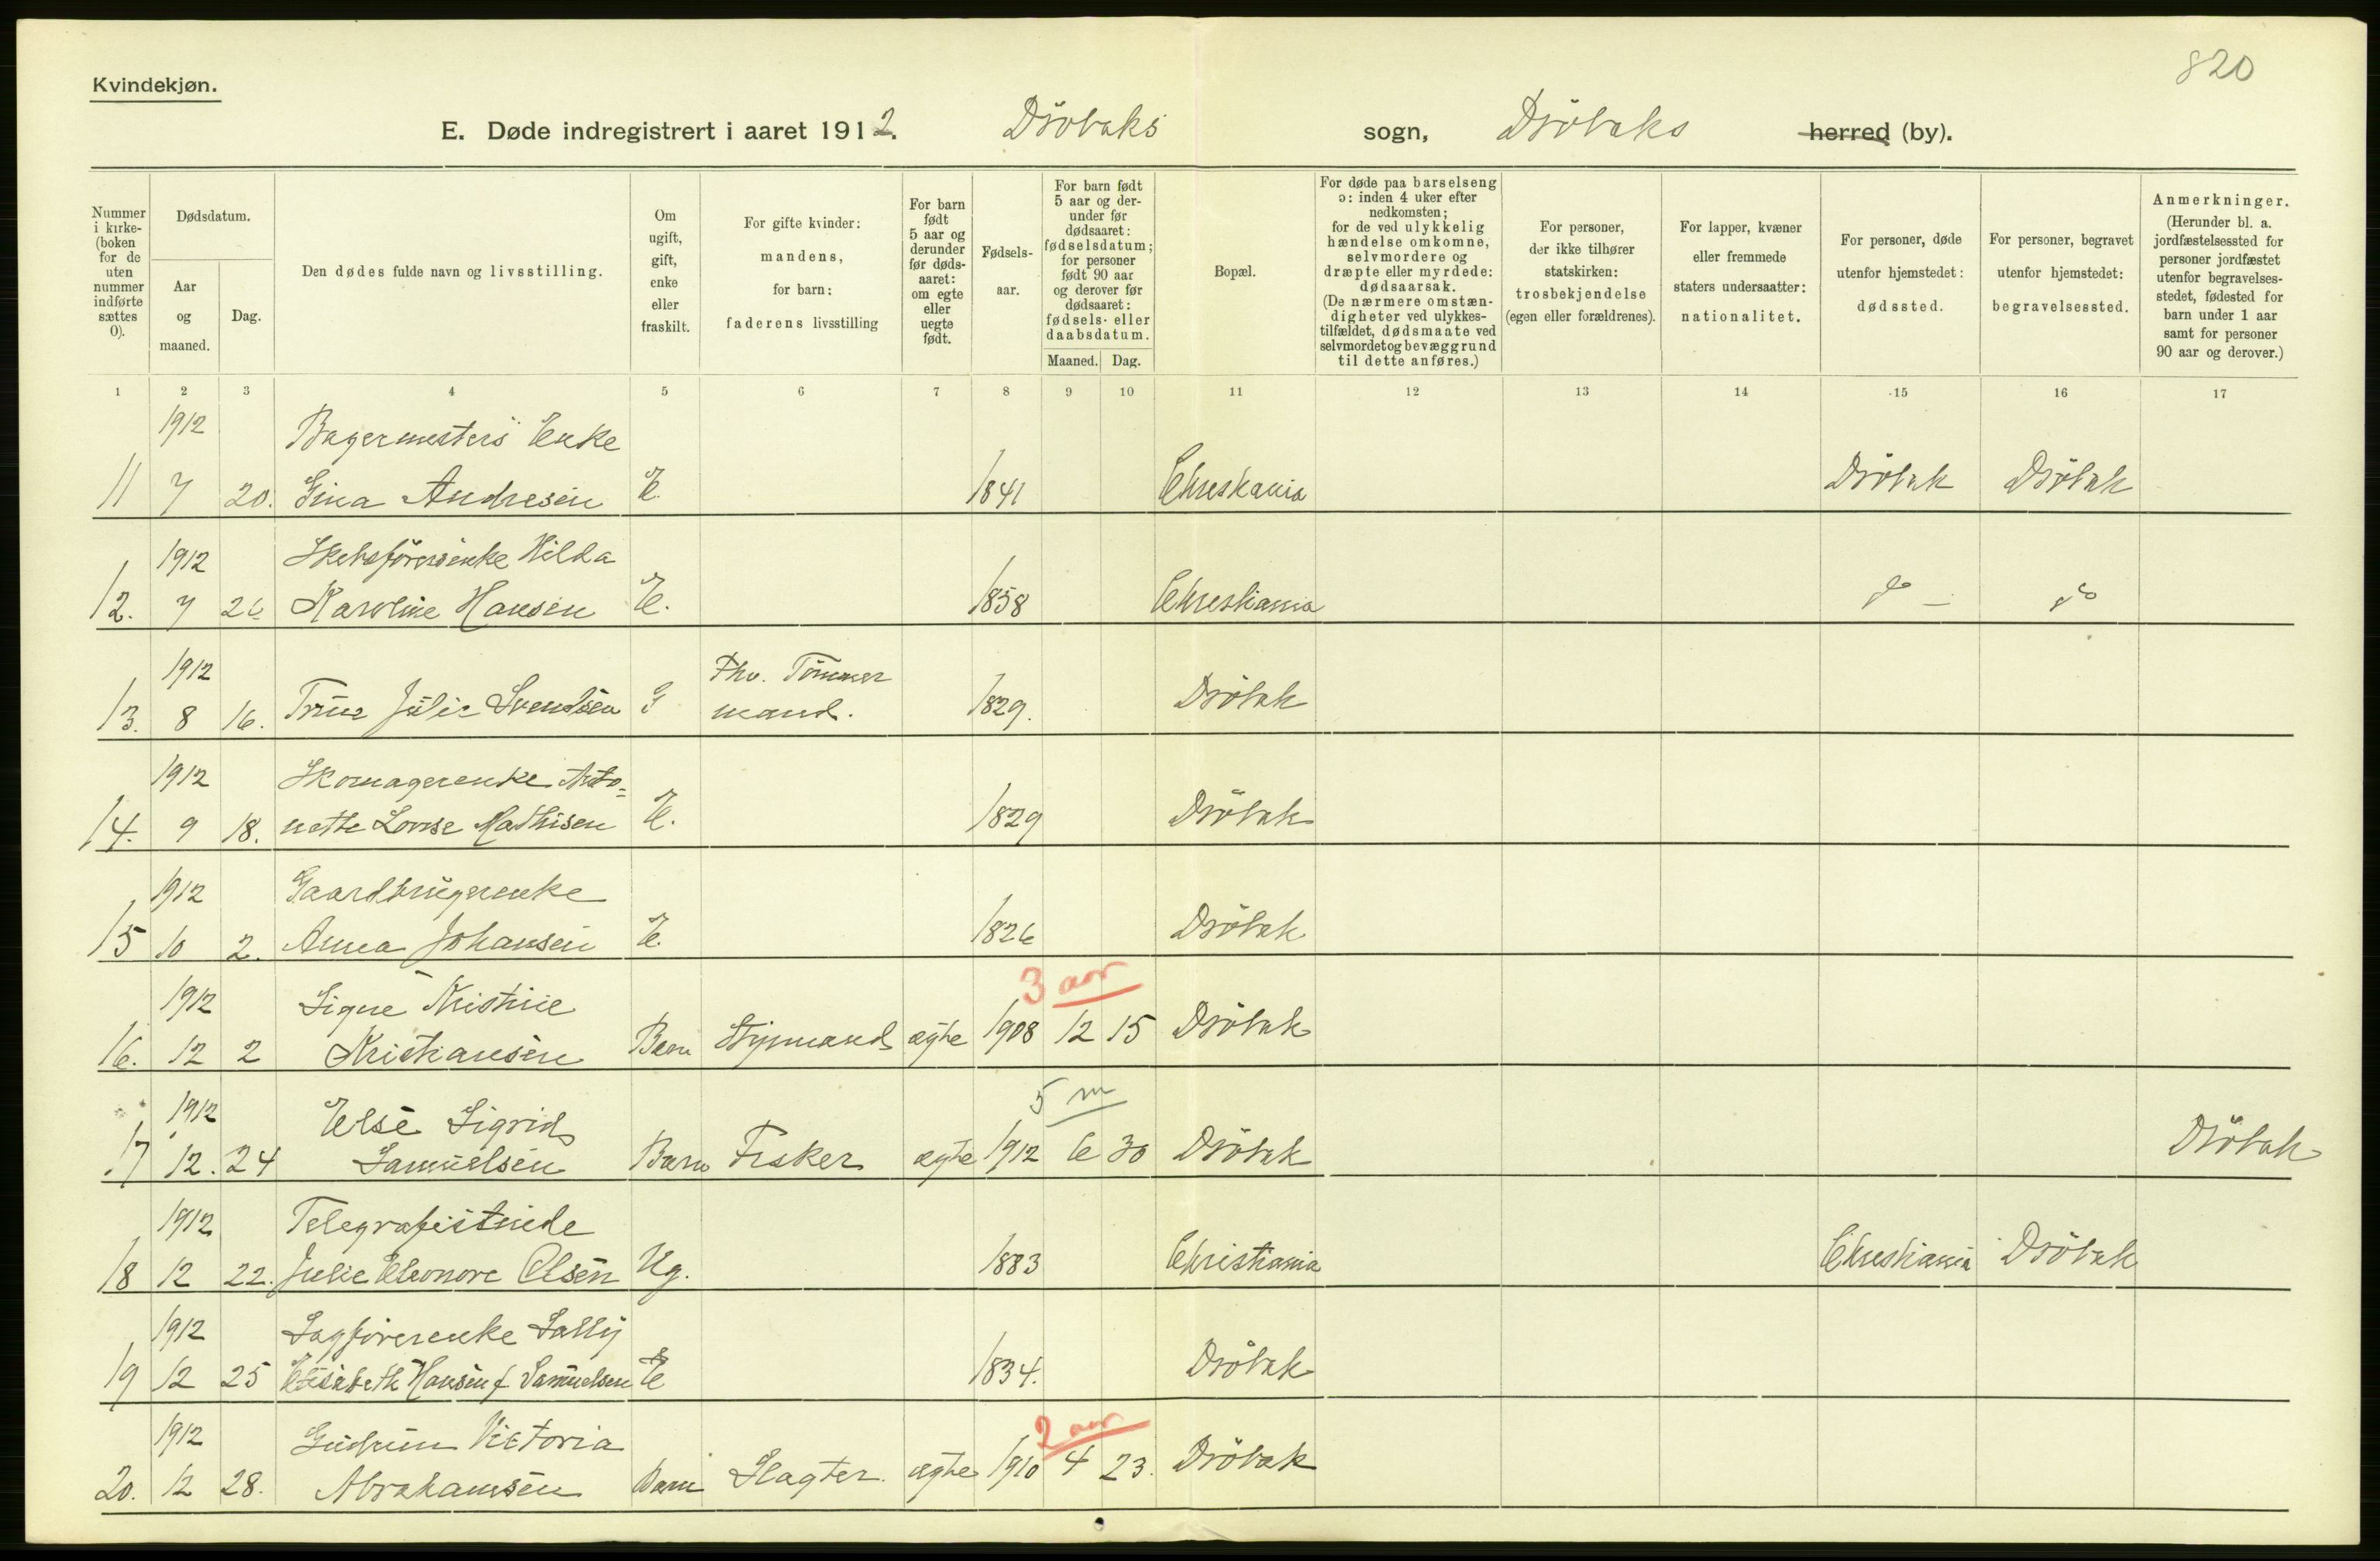 820
Kvindekjøn.
E. Døde indregistrert i aaret 1912. Dröbaks sogn, Dröbaks herred (by).
Nummer i kirke- (boken for de uten nummer indførte sættes 0).
Dødsdatum.
Aar og maaned.
Dag.
Den dødes fulde navn og livsstilling.
Om ugift, gift, enke eller fraskilt.
For gifte kvinder: mandens, for barn: faderens livsstilling
For barn født 5 aar og derunder før døds- aaret: om egte eller uegte født.
Fødsels- aar.
For barn født 5 aar og der- under før dødsaaret: fødselsdatum; for personer født 90 aar og derover før dødsaaret: fødsels- eller daabsdatum.
Maaned. Dag.
Bopæl.
For døde paa barselseng ɔ: inden 4 uker efter nedkomsten; for de ved ulykkelig hændelse omkomne, selvmordere og dræpte eller myrdede: dødsaarsak. (De nærmere omstæn- digheter ved ulykkes- tilfældet, dødsmaate ved selvmordet og bevæggrund til dette anføres.)
For personer, der ikke tilhører statskirken: trosbekjendelse (egen eller forældrenes).
For lapper, kvæner eller fremmede staters undersaatter: nationalitet.
For personer, døde utenfor hjemstedet: dødssted.
For personer, begravet utenfor hjemstedet: begravelsessted.
Anmerkninger. (Herunder bl. a. jordfæstelsessted for personer jordfæstet utenfor begravelses- stedet, fødested for barn under 1 aar samt for personer 90 aar og derover.)
1 2 3 4 5 6 7 8 9 10 11 12 13 14 15 16 17
1912 Bagermesters Enke
11 7 20. Gina Andresen E. 1841 Christiania Dröbak Dröbak
1912 Skibsförerenke Hilda
12. 7 26 Karoline Hansen E. 1858 Christiania do — do
1912 Fhv. Tömmer
13. 8 16. Trine Julie Svendsen G mand. 1829. Dröbak
1912 Skomagerenke Anto=
14. 9 18. nette Lovise Mathisen E. 1829 Dröbak
1912 Gaardbrugerenke
15 10 2. Anna Johansen E. 1826 Dröbak
3 aar
1912 Signe Kristine
16. 12 2 Kristiansen Barn Styrmand ægte 1908 12 15 Dröbak
5 m
1912 Else Sigrid
17 12. 24 Samuelsen Barn Fisker ægte 1912 6 30 Dröbak Dröbak
1912 Telegrafistinde
18 12 22. Julie Eleonore Olsen Ug. 1883 Christiania Christiania Dröbak
1912 Sagförerenke Sally
19 12 25 Elisabeth Hansen f. Samuelsen E 1834. Dröbak
2 aar
1912 Gudrun Victoria
20. 12 28. Abrahamsen Barn Slagter. ægte 1910 4 23. Dröbak